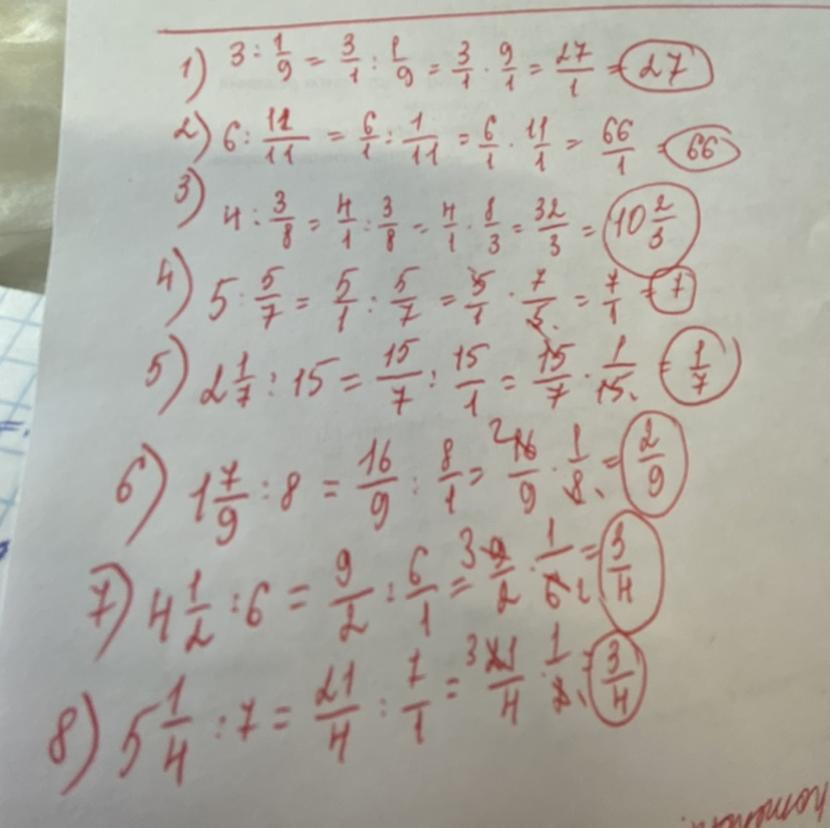 1) 3 : 1/9 = 3/1 : 1/9 = 3/1 · 9/1 = 27/1 = 27
2) 6 : 11/11 = 6/1 : 1/11 = 6/1 · 11/1 = 66/1 = 66
3) 4 : 3/8 = 4/1 : 3/8 = 4/1 · 8/3 = 32/3 = 10 2/3
4) 5 : 5/7 = 5/1 : 5/7 = 5/1 · 7/5 = 7/1 = 7
5) 2 1/7 : 15 = 15/7 : 15/1 = 15/7 · 1/15 = 1/7
6) 1 7/9 : 8 = 16/9 : 8/1 = 2 16/9 · 1/8 1 = 2/9
7) 4 1/2 : 6 = 9/2 : 6/1 = 3 9/2 · 1/6 2 = 3/4
8) 5 1/4 : 7 = 21/4 : 7/1 = 3 21/4 · 1/7 1 = 3/4